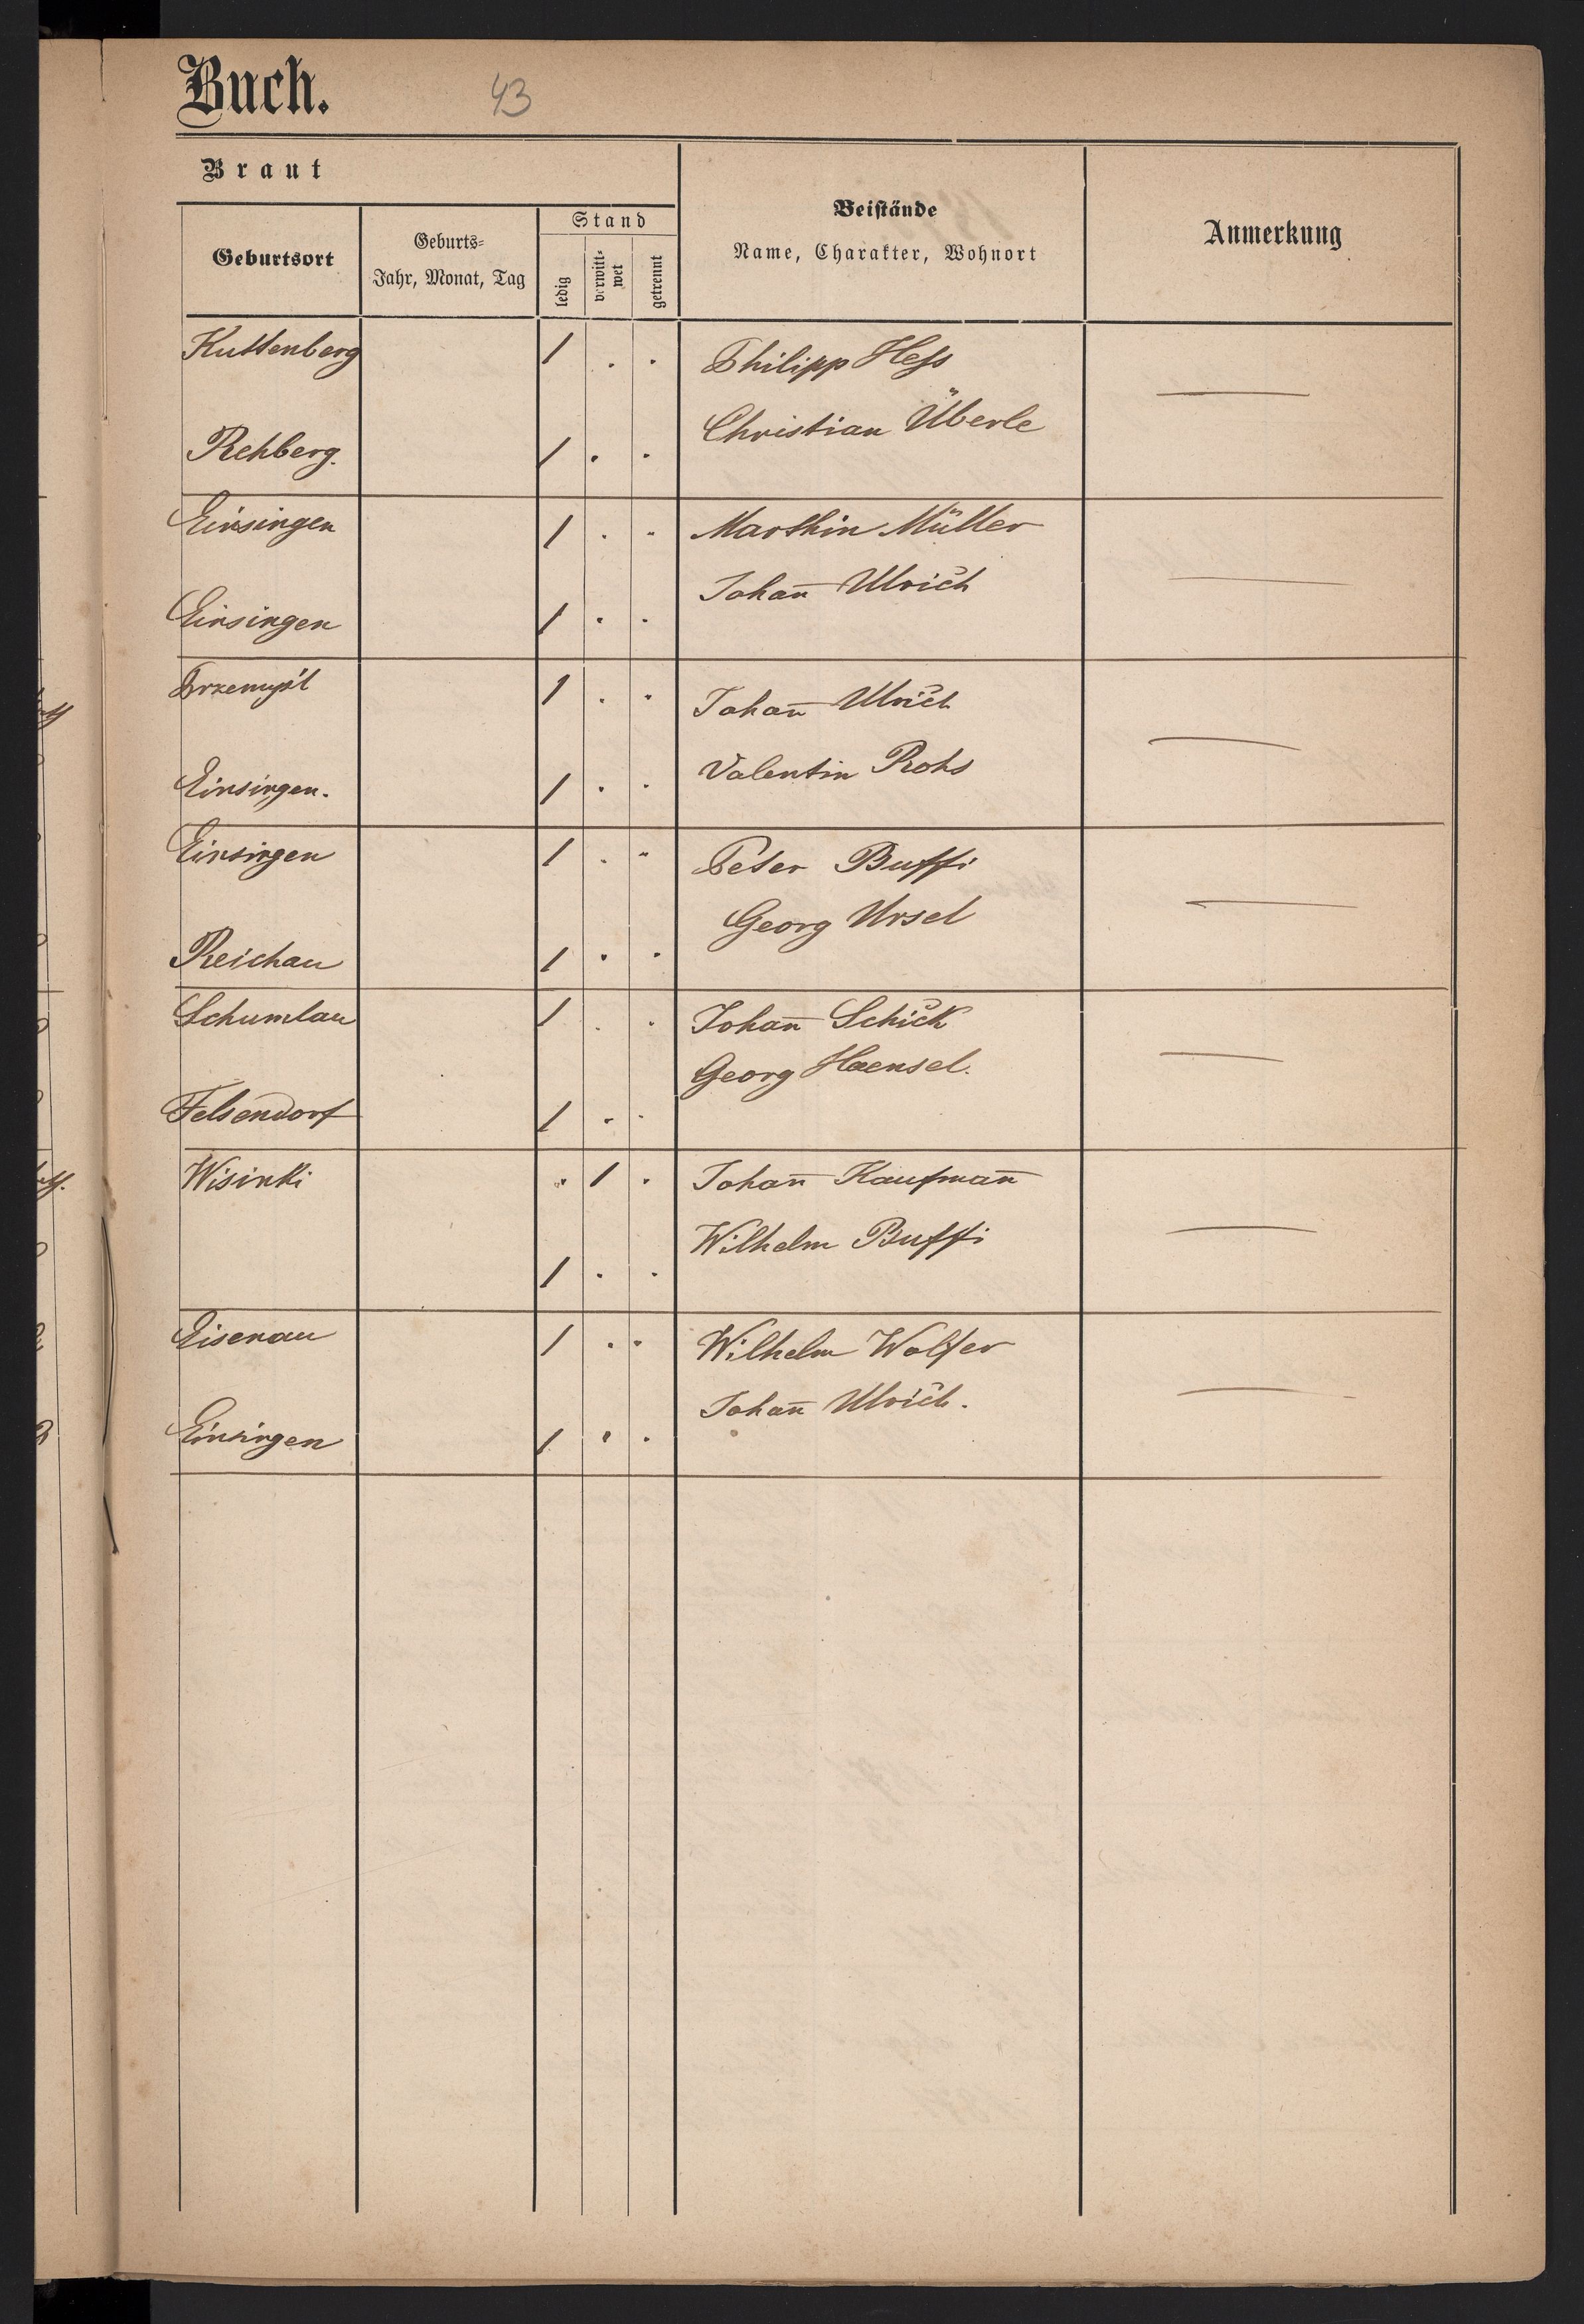 Buch. 43
Braut
Geburtsort
Geburts-
Jahr, Monat, Tag
Stand
ledig
verwitt-
wet
getrennt
Beistände
Name, Charakter, Wohnort
Anmerkung
Kuttenberg 1 . . Philipp Hess —
Christian Überle
Rehberg. 1 . .
Einsingen 1 . . Marthin Müller
Johan̄ Ulrich —
Einsingen 1 . .
Przemyśl 1 . . Johan̄ Ulrich —
Valentin Rohs
Einsingen. 1 . .
Einsingen 1 . . Peter Buffi
Georg Ursel —
Reichau 1 . .
Schumlau 1 . . Johan̄ Schick
Georg Haensel. —
Felsendorf 1 . .
Wisinki . 1 . Johan̄ Kaufman̄
Wilhelm Buffi —
1 . .
Eisenau 1 . . Wilhelm Wolfer
Johan̄ Ulrich. —
Einsingen 1 . .